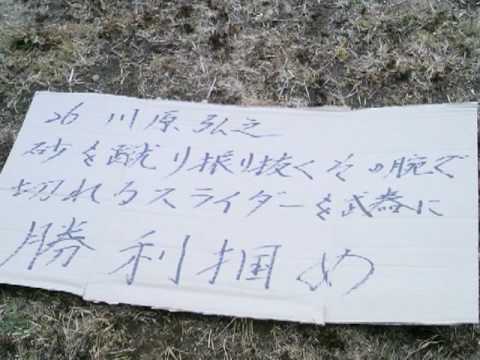 26 川原弘之
砂を蹴り振り抜くその腕で
切れるスライダーを武器に
勝利掴め